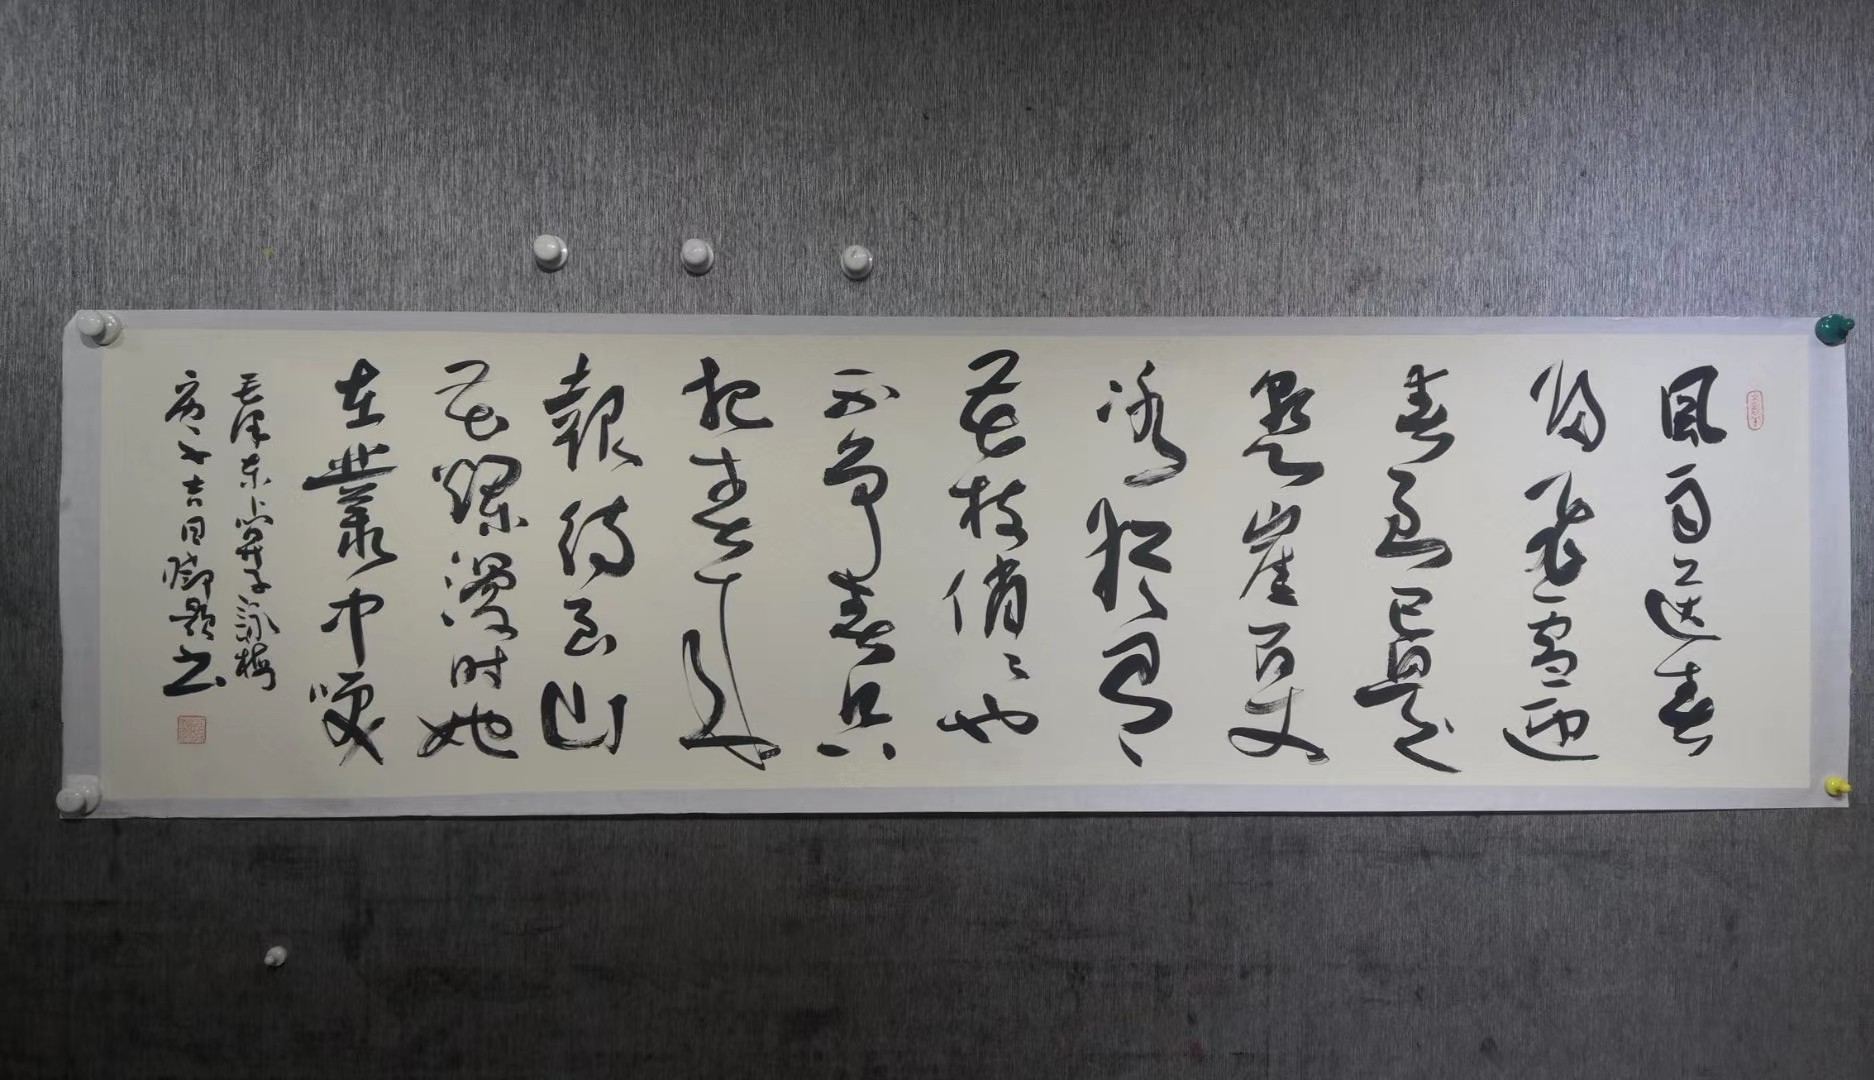 風雨送春
歸飛雪迎
春到已是
懸崖百丈
冰猶有
花枝俏〻也
不爭春只
把春來
報待到山
花爛漫時她
在叢中咲
毛泽东卜算子詠梅
吉日 題书